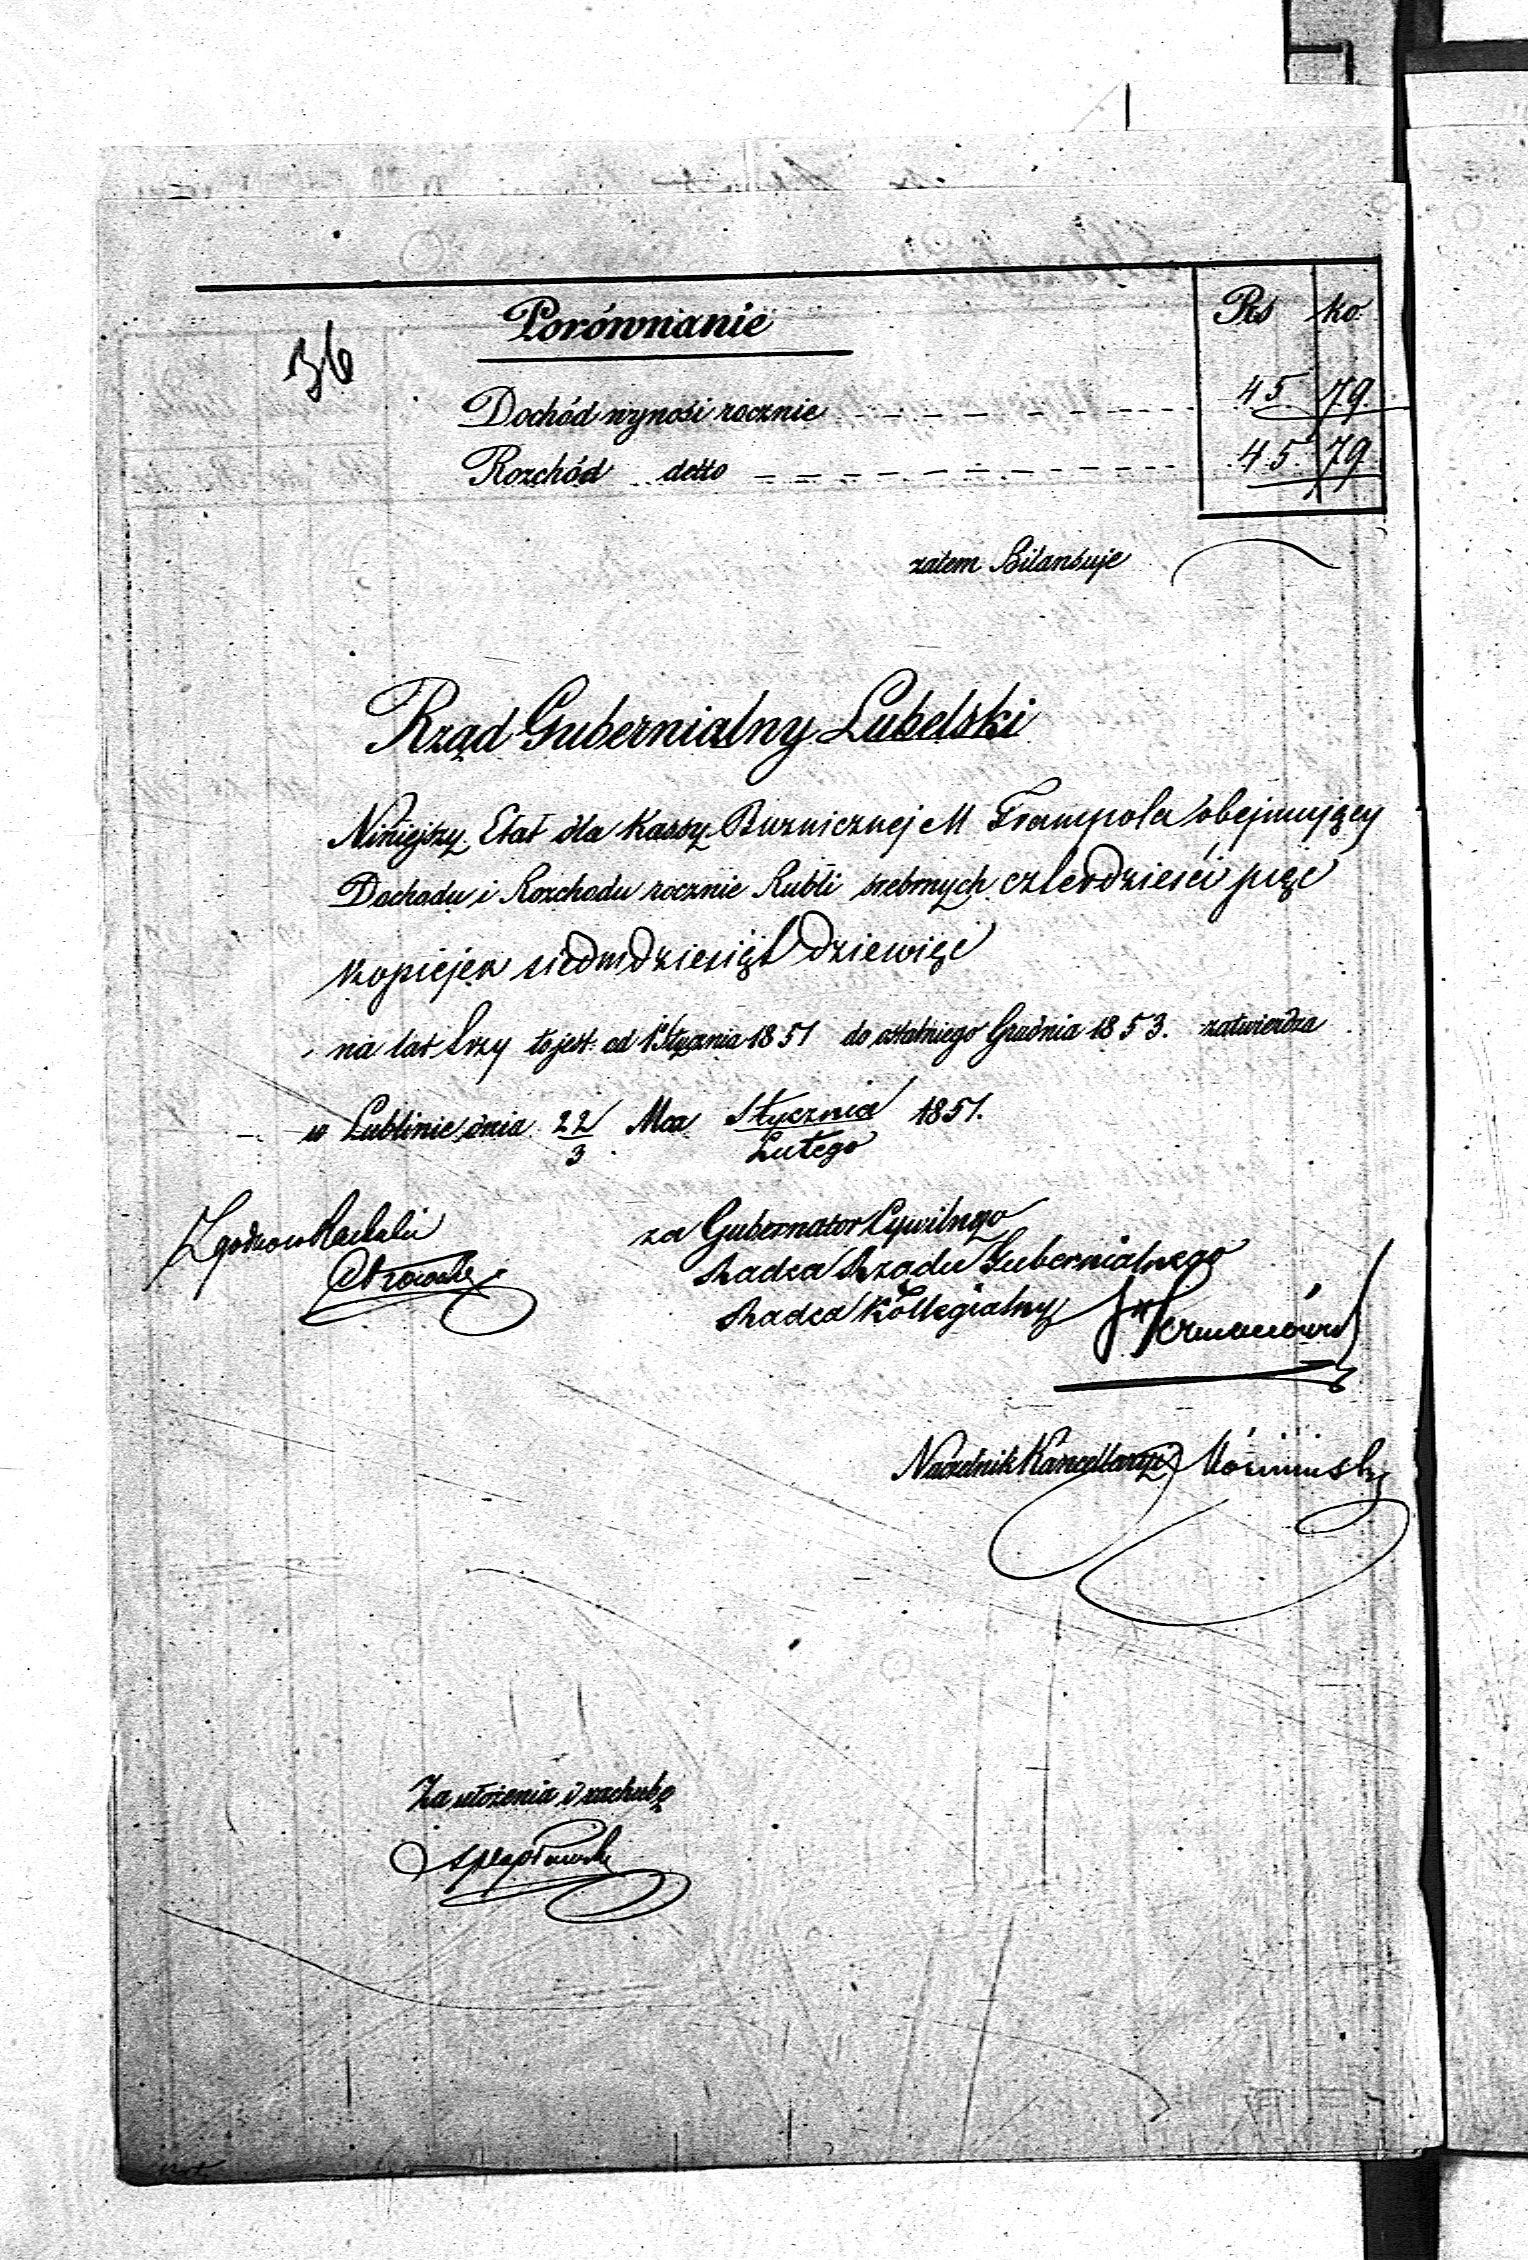 Porównanie Rs ko.
36
Dochód wynosi rocznie 45. 79.
Rozchód detto 45. 79.
zatem Bilansuje
Rząd Gubernialny Lubelski
Niniejszy Etat dla Kassy Buznicznej M Frampola obejmujący
Dochodu i Rozchodu rocznie Rubli srebrnych czterdzieści pięc
kopiejek siedmdziesiąt dziewięc
na lat trzy to jest: od 1 Stycznia 1851 do ostatniego Grudnia 1853. zatwierdza
w Lublinie dnia 22/3 Mca Stycznia/Lutego 1851.
za Gubernator Cywilnego
Radca Rządu Gubernialnego
Radca Kollegialny
Naczelnik Kancellaryi
Za ułożenia i rachubę